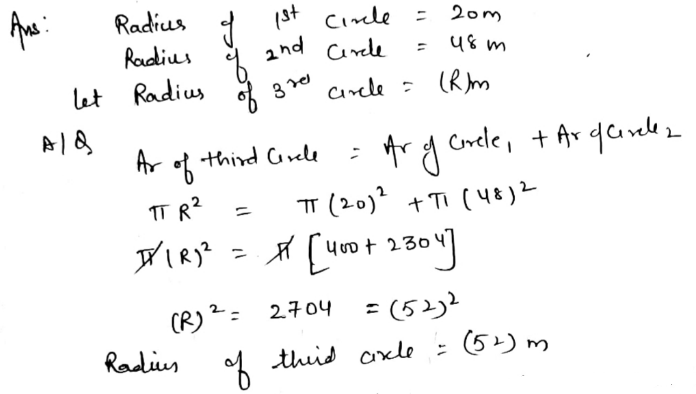 Ans: Radius of 1st Circle = 20m
Radius of 2nd Circle = 48 m
Let Radius of 3rd circle = (R)m
A/Q
Ar of third Circle = Ar of Circle₁ + Ar of Circle₂
π R² = π (20)² + π (48)²
π (R)² = π [400 + 2304]
(R)² = 2704 = (52)²
Radius of third circle = (52) m